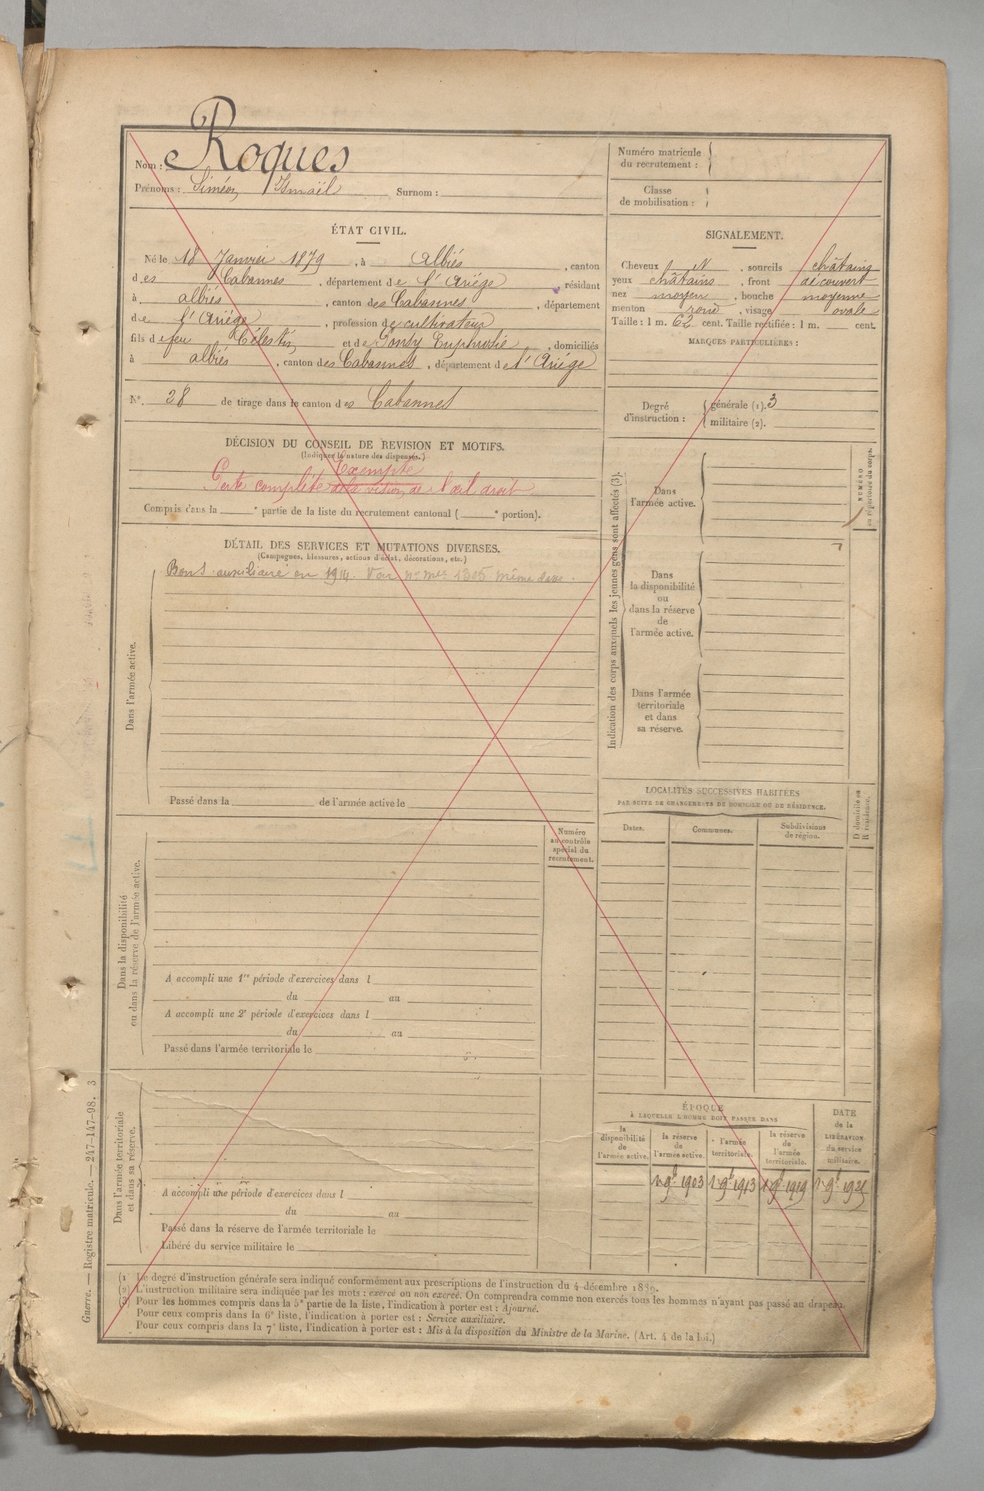 Nom : Roques
Prénoms : Siméon, Ismaël Surnom :
Numéro matricule
du recrutement :
Classe
de mobilisation :
ÉTAT CIVIL.
Né le 18 Janvier 1879, à Albiés, canton
des Cabannes, département de l'Ariége, résidant
à albiés, canton des Cabannes, département
de l'Ariége, profession de cultivateur
fils de feu Célestin, et de Gonsy Euphrosie, domiciliés
à albiés, canton des Cabannes, département de l'Ariége
N°. 28 de tirage dans le canton des Cabannes
SIGNALEMENT.
Cheveux N, sourcils châtains
yeux châtains, front découvert
nez moyen, bouche moyenne
menton rond, visage ovale
Taille : 1 m. 62 cent. Taille rectifiée : 1 m. cent.
MARQUES PARTICULIÈRES :
Degré
d'instruction :
générale (1). 3
militaire (2).
DÉCISION DU CONSEIL DE REVISION ET MOTIFS.
(Indiquer la nature des dispenses.)
Exempté
Perte complète de la vision de l'œil droit
Compris dans la e partie de la liste du recrutement cantonal ( e portion).
DÉTAIL DES SERVICES ET MUTATIONS DIVERSES.
(Campagnes, blessures, actions d'éclat, décorations, etc.)
Bon s. auxiliaire en 1914. Voir n° mle 1305 même classe.
Dans l'armée active.
Passé dans la de l'armée active le
Indication des corps auxquels les jeunes gens sont affectés (3).
Dans
l'armée active.
Dans
la disponibilité
ou
dans la réserve
de
l'armée active.
Dans l'armée
territoriale
et dans
sa réserve.
NUMÉRO
au répertoire du corps.
LOCALITÉS SUCCESSIVES HABITÉES
PAR SUITE DE CHANGEMENTS DE DOMICILE OU DE RÉSIDENCE.
Dates. Communes. Subdivisions
de région.
D domicile ou
R résidence.
Numéro
au contrôle
spécial du
recrutement.
Dans la disponibilité
ou dans la réserve de l'armée active.
A accompli une 1re période d'exercices dans l
du au
A accompli une 2e période d'exercices dans l
du au
Passé dans l'armée territoriale le
Dans l'armée territoriale
et dans sa réserve.
A accompli une période d'exercices dans l
du au
Passé dans la réserve de l'armée territoriale le
Libéré du service militaire le
ÉPOQUE
À LAQUELLE L'HOMME DOIT PASSER DANS
la
disponibilité
de
l'armée active.
la réserve
de
l'armée active.
l'armée
territoriale.
la réserve
de
l'armée
territoriale.
DATE
de la
LIBÉRATION
du service
militaire.
1 9b 1903 1 9b 1913 1 9b 1919 1 9b 1925
(1) Le degré d'instruction générale sera indiqué conformément aux prescriptions de l'instruction du 4 décembre 1889.
(2) L'instruction militaire sera indiquée par les mots : exercé ou non exercé. On comprendra comme non exercés tous les hommes n'ayant pas passé au drapeau.
(3) Pour les hommes compris dans la 5e partie de la liste, l'indication à porter est : Ajourné.
Pour ceux compris dans la 6e liste, l'indication à porter est : Service auxiliaire.
Pour ceux compris dans la 7e liste, l'indication à porter est : Mis à la disposition du Ministre de la Marine. (Art. 4 de la loi.)
Guerre. — Registre matricule. — 247-147-98. 3